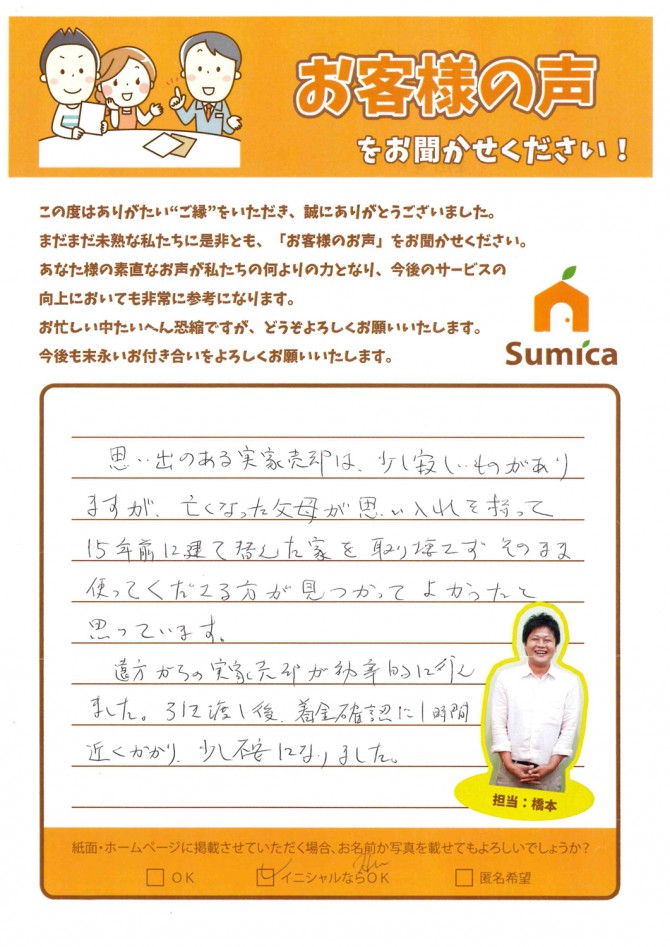 お客様の声
をお聞かせください！
この度はありがたい“ご縁”をいただき、誠にありがとうございました。
まだまだ未熟な私たちに是非とも、「お客様のお声」をお聞かせください。
あなた様の素直なお声が私たちの何よりの力となり、今後のサービスの
向上においても非常に参考になります。
お忙しい中たいへん恐縮ですが、どうぞよろしくお願いいたします。
今後も末永いお付き合いをよろしくお願いいたします。
Sumica
思い出のある実家売却は、少し寂しいものがあり
ますが、亡くなった父母が思い入れを持って
15年前に建て替えた家を取り壊さず そのまま
使ってくださる方が見つかって よかったと
思っています。
遠方からの実家売却が効率的に行え
ました。引き渡し後、着金確認に1時間
近くかかり、少し不安になりました。
担当：橋本
紙面・ホームページに掲載させていただく場合、お名前か写真を載せてもよろしいでしょうか？
OK イニシャルならOK 匿名希望